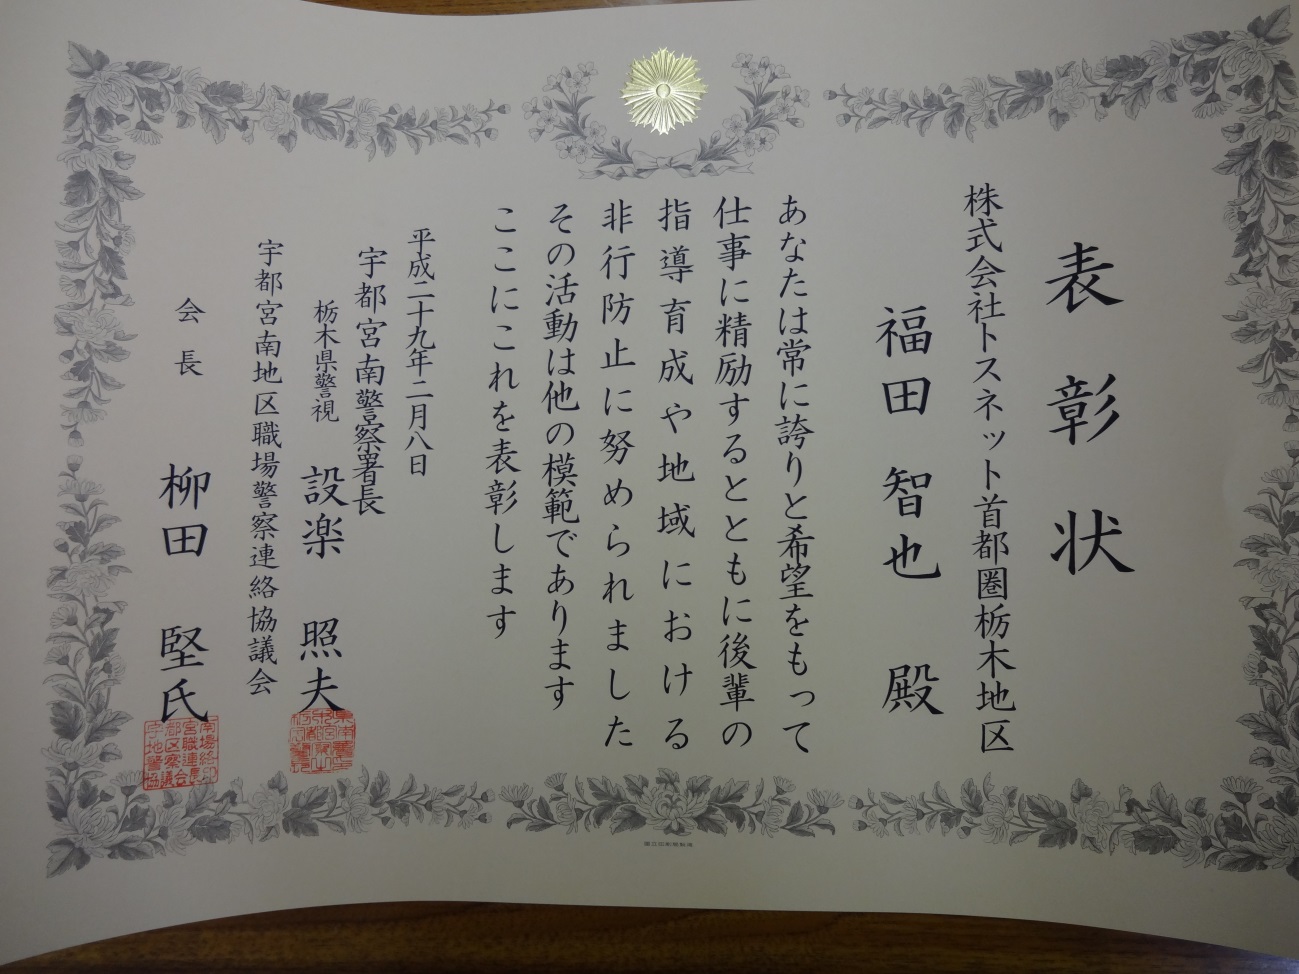 表彰状
株式会社トスネット首都圏栃木地区
福田 智也 殿
あなたは常に誇りと希望をもって
仕事に精励するとともに後輩の
指導育成や地域における
非行防止に努められました
その活動は他の模範であります
ここにこれを表彰します
平成二十九年二月八日
宇都宮南警察署長
栃木県警視 設楽 照夫
宇都宮南地区職場警察連絡協議会
会長 柳田 堅氏